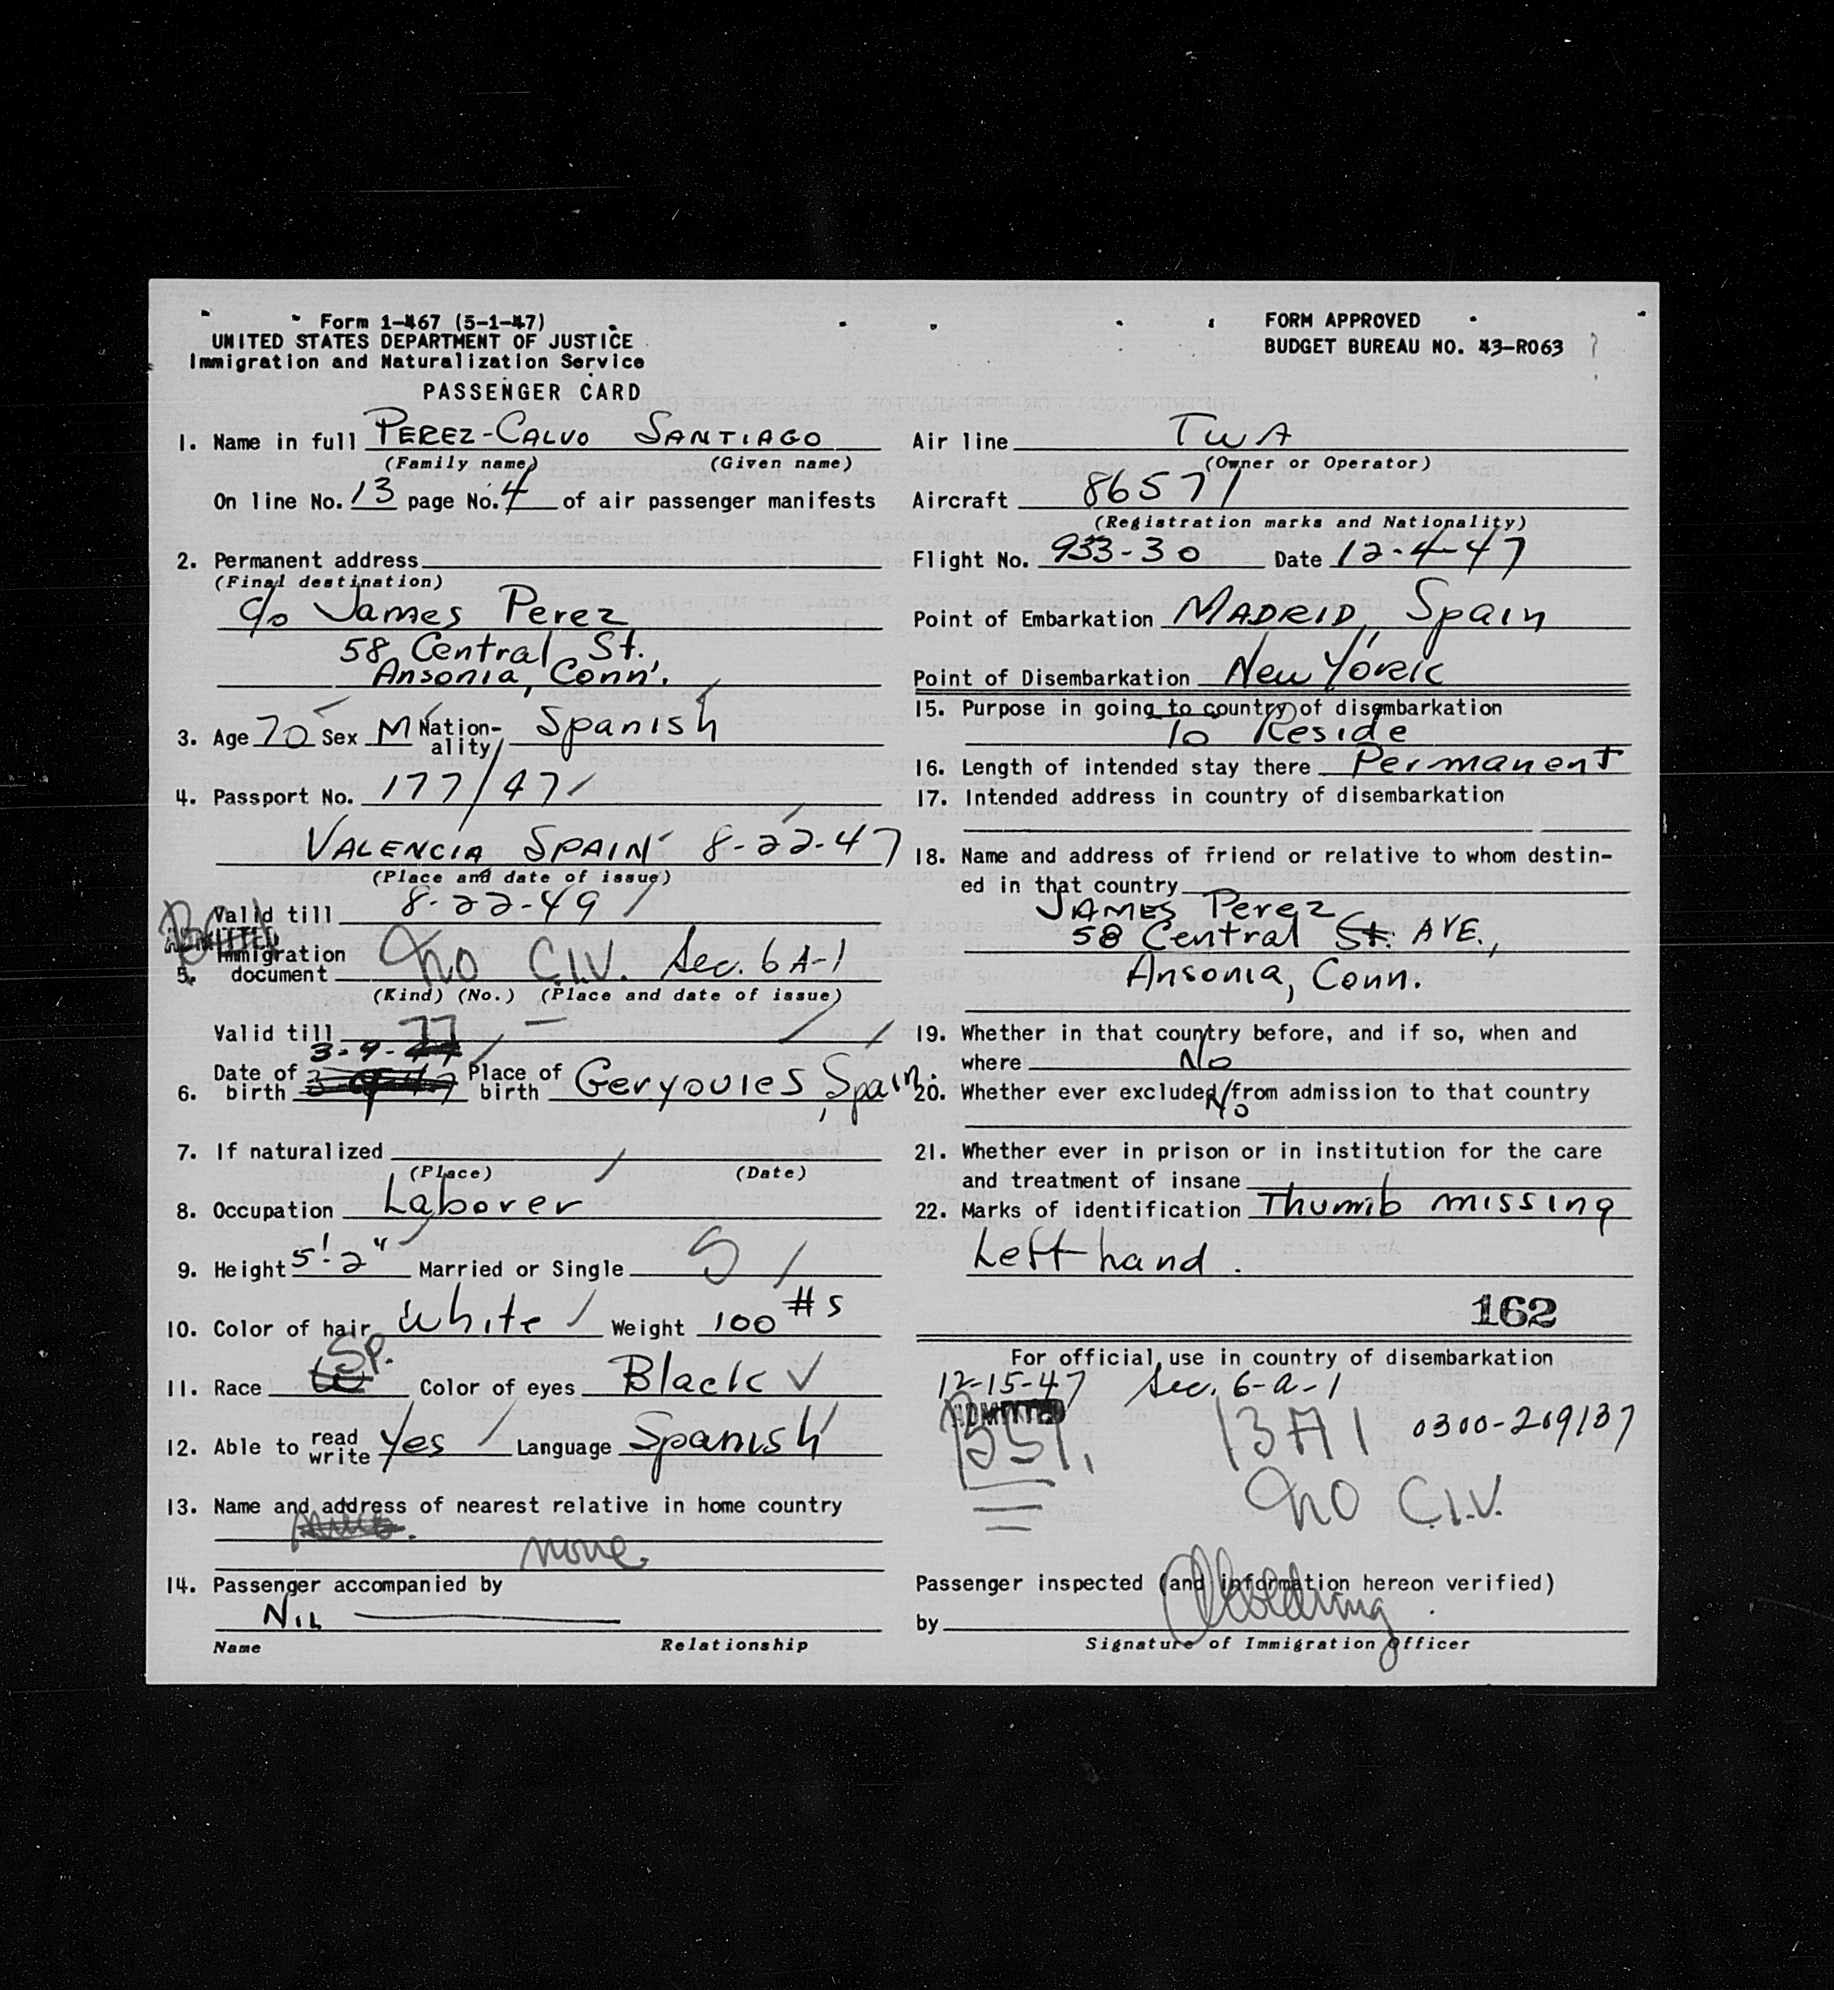 Form 1-467 (5-1-47)
UNITED STATES DEPARTMENT OF JUSTICE
Immigration and Naturalization Service
PASSENGER CARD
FORM APPROVED
BUDGET BUREAU NO. 43-R063
1. Name in full PEREZ-CALVO SANTIAGO
(Family name) (Given name)
On line No. 13 page No. 4 of air passenger manifests
2. Permanent address
(Final destination)
c/o James Perez
58 Central St.,
Ansonia, Conn.
3. Age 70 Sex M Nationality Spanish
4. Passport No. 177/47
VALENCIA SPAIN 8-22-47
(Place and date of issue)
Valid till 8-22-49
ADMITTED
5. Immigration document No C.I.V. Sec. 6A-1
(Kind) (No.) (Place and date of issue)
Valid till
77
3-9-
6. Date of birth Place of birth Geryovies, Spain.
7. If naturalized
(Place) (Date)
8. Occupation Laborer
9. Height 5'-2" Married or Single S
10. Color of hair White Weight 100 #s
11. Race Sp. Color of eyes Black
12. Able to read write Yes Language Spanish
13. Name and address of nearest relative in home country
none.
14. Passenger accompanied by
NIL
Name Relationship
Air line TWA
(Owner or Operator)
Aircraft 86571
(Registration marks and Nationality)
Flight No. 933-30 Date 12-4-47
Point of Embarkation MADRID, Spain
Point of Disembarkation New York
15. Purpose in going to country of disembarkation
To Reside
16. Length of intended stay there Permanent
17. Intended address in country of disembarkation
18. Name and address of friend or relative to whom destin-
ed in that country
JAMES Perez
58 Central St. AVE.,
Ansonia, Conn.
19. Whether in that country before, and if so, when and
where No
20. Whether ever excluded from admission to that country
No
21. Whether ever in prison or in institution for the care
and treatment of insane
22. Marks of identification Thumb missing
Left hand.
162
For official use in country of disembarkation
12-15-47 Sec. 6-a-1
ADMITTED
13A1 0300-209137
No C.I.V.
Passenger inspected (and information hereon verified)
by
Signature of Immigration Officer